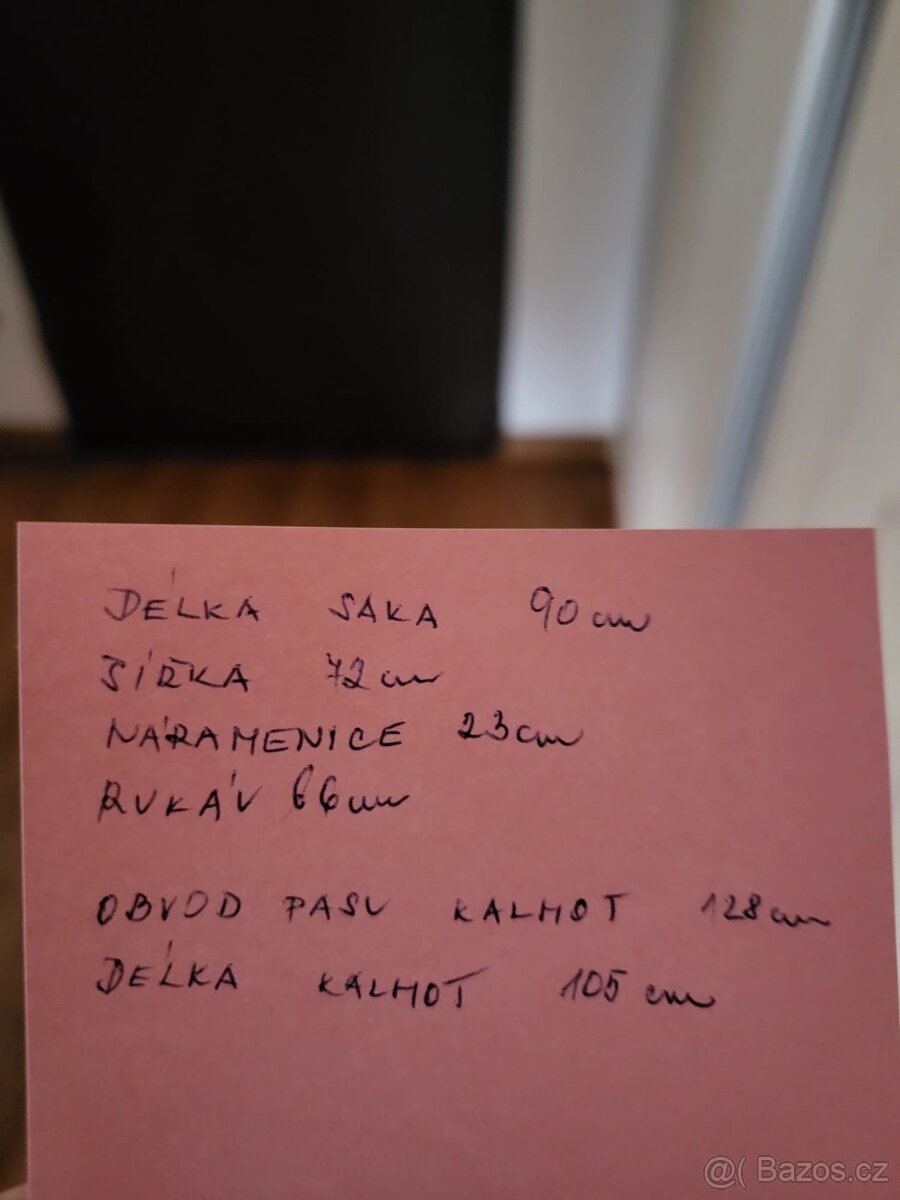 DÉLKA SAKA 90 cm
ŠÍŘKA 72 cm
NÁRAMENICE 23 cm
RUKÁV 66 cm
OBVOD PASU KALHOT 128 cm
DÉLKA KALHOT 105 cm
@( Bazos.cz